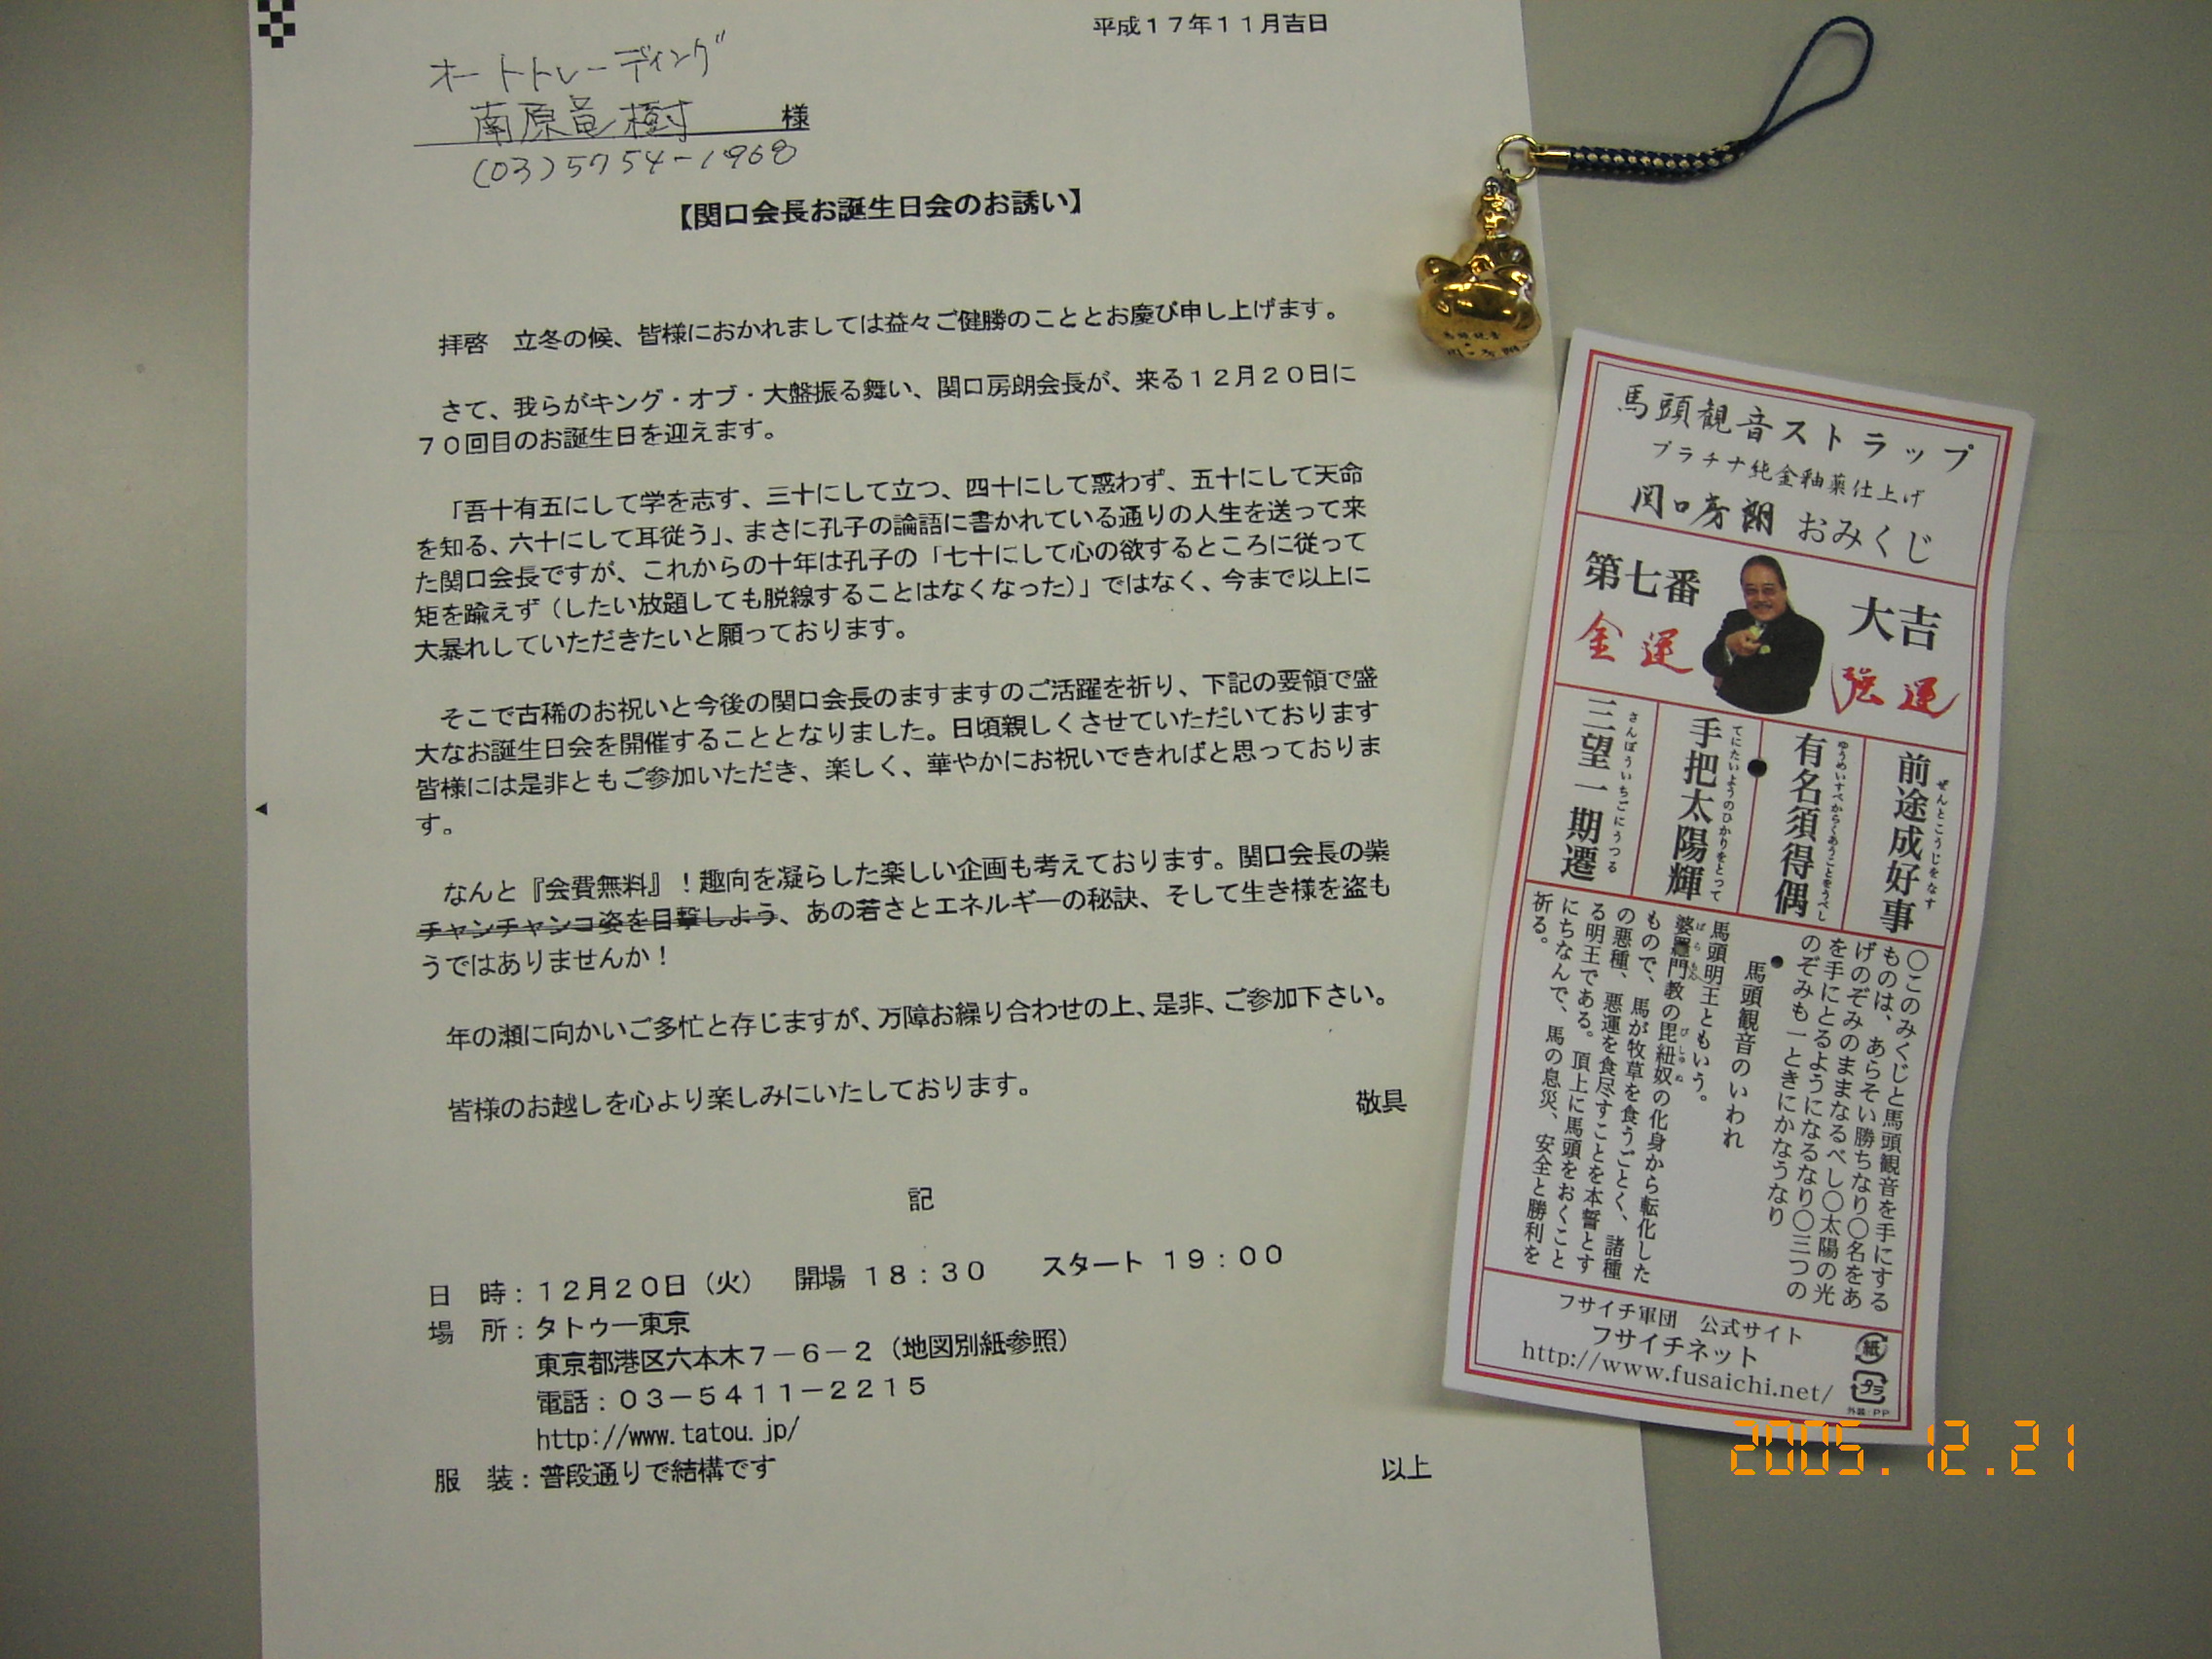 平成１７年１１月吉日
オートトレーディング
南原竜樹　様
(03)5754-1968
【関口会長お誕生日会のお誘い】
拝啓　立冬の候、皆様におかれましては益々ご健勝のこととお慶び申し上げます。
さて、我らがキング・オブ・大盤振る舞い、関口房朗会長が、来る１２月２０日に
７０回目のお誕生日を迎えます。
「吾十有五にして学を志す、三十にして立つ、四十にして惑わず、五十にして天命
を知る、六十にして耳従う」、まさに孔子の論語に書かれている通りの人生を送って来
た関口会長ですが、これからの十年は孔子の「七十にして心の欲するところに従って
矩を踰えず（したい放題しても脱線することはなくなった）」ではなく、今まで以上に
大暴れしていただきたいと願っております。
そこで古稀のお祝いと今後の関口会長のますますのご活躍を祈り、下記の要領で盛
大なお誕生日会を開催することとなりました。日頃親しくさせていただいております
皆様には是非ともご参加いただき、楽しく、華やかにお祝いできればと思っておりま
す。
なんと『会費無料』！趣向を凝らした楽しい企画も考えております。関口会長の紫
チャンチャンコ姿を目撃しよう、あの若さとエネルギーの秘訣、そして生き様を盗も
うではありませんか！
年の瀬に向かいご多忙と存じますが、万障お繰り合わせの上、是非、ご参加下さい。
皆様のお越しを心より楽しみにいたしております。
敬具
記
日　時：１２月２０日（火）　開場 １８：３０　　スタート １９：００
場　所：タトゥー東京
東京都港区六本木７－６－２（地図別紙参照）
電話：０３－５４１１－２２１５
http://www.tatou.jp/
服　装：普段通りで結構です
以上
馬頭観音ストラップ
プラチナ純金釉薬仕上げ
関口房朗 おみくじ
第七番
大吉
金運
強運
前途成好事
ぜんとこうじをなす
有名須得偶
ゆうめいすべからくあうことをうべし
手把太陽輝
てにたいようのひかりをとって
三望一期遷
さんぼういちごにうつる
〇このみくじと馬頭観音を手にする
ものは、あらそい勝ちなり〇名をあ
げのぞみのままなるべし〇太陽の光
を手にとるようになるなり〇三つの
のぞみも一ときにかなうなり
馬頭観音のいわれ
馬頭明王ともいう。
婆羅門教の毘紐奴の化身から転化した
ばらもん
びしゅぬ
もので、馬が牧草を食うごとく、諸種
の悪種、悪運を食尽すことを本誓とす
る明王である。頂上に馬頭をおくこと
にちなんで、馬の息災、安全と勝利を
祈る。
フサイチ軍団　公式サイト
フサイチネット
http://www.fusaichi.net/
紙
プラ
外装：PP
2005.12.21